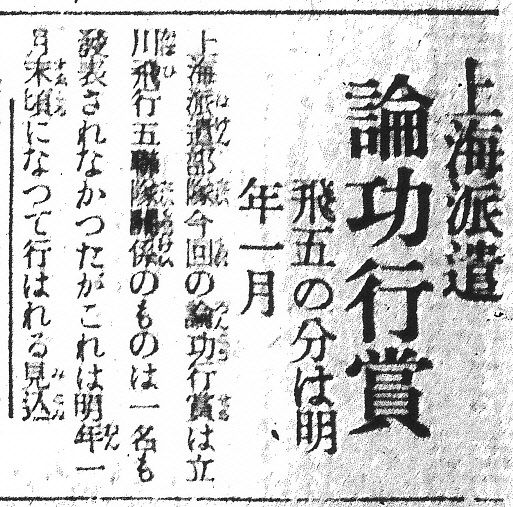 上海派遣
論功行賞
飛五の分は明
年一月
上海派遣部隊今回の論功行賞は立
川飛行五聯隊關係のものは一名も
發表されなかつたがこれは明年一
月末頃になつて行はれる見込